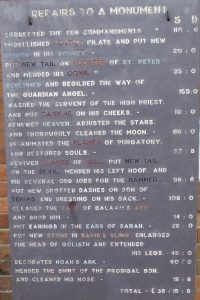 REPAIRS TO A MONUMENT
S D
CORRECTED THE TEN COMMANDMENTS.
EMBELLISHED PONTIUS PILATE AND PUT NEW
IN HIS BONNET.
PUT NEW TAIL ON ROOSTER OF ST. PETER
AND MENDED HIS COMB.
REPLUMED AND REGILDED THE WAY OF
THE GUARDIAN ANGEL.
WASHED THE SERVENT OF THE HIGH PRIEST.
AND PUT CARMINE ON HIS CHEEKS. 10:0
RENEWED HEAVEN, ADJUSTED THE STARS.
AND THOROUGHLY CLEANED THE MOON.
RE-ANIMATED THE FLAMES OF PURGATORY.
AND RESTORED SOULS.
REVIVED FLAMES OF HELL. PUT NEW TAIL
ON THE DEVIL, MENDED HIS LEFT HOOF, AND
DID SEVERAL ODD JOBS FOR THE DAMNED.
PUT NEW SPOTTED DASHES ON SON OF
TOBIAS AND DRESSING ON HIS SACK.
CLEANED THE EARS OF BALAAM'S ASS
AND SHOD HIM
PUT EARINGS IN THE EARS OF SARAH.
PUT NEW STONE IN DAVID'S SLING, ENLARGED
THE HEAD OF GOLIATH AND EXTENDED
HIS LEGS.
DECORATED NOAH'S ARK.
MENDED THE SHIRT OF THE PRODIGAL SON,
AND CLEANED HIS NOSE.
TOTAL